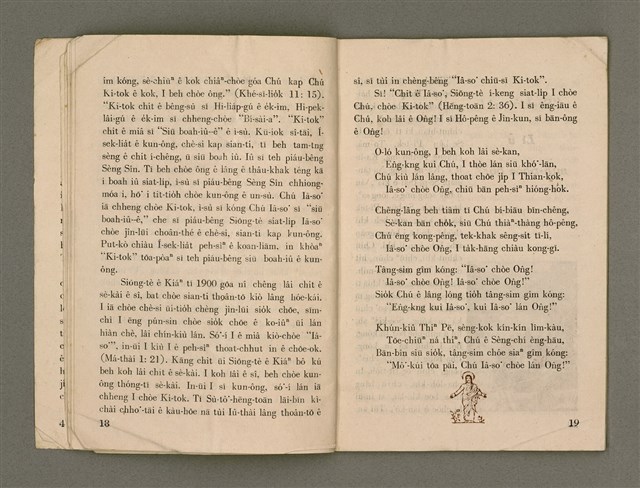 īm kóng, sè-chiūⁿ ê kok chiâⁿ-chòe góa Chú kap Chú
Ki-tok ê kok, I beh chòe ông." (Khē-sī-lio̍k 11: 15).
"Ki-tok chit ê bêng-sû sī Hi-lia̍p-gú ê e̍k-im, Hi-pek-
lâi-gú ê e̍k-im sī chheng-chòe "Bî-sài-a". "Ki-tok"
chit ê miâ sī "Siū boah-iû-ê" ê ì-sù. Kū-iok sî-tāi, Í-
sek-lia̍t ê kun-ông, chè-si kap sian-ti, tī beh tam-tng
sèng ê chit ì-chêng, ū siū boah iû. Iû sī teh piáu-bêng
Sèng Sîn. Tī beh chòe ông ê lâng ê thâu-khak téng kā
i boah iû siat-li̍p, ì-sù sī piáu-bêng Sèng Sîn chhiong-
móa i, hō͘ i tit-tio̍h chòe kun-ông ê un-sù. Chú Iâ-so͘
iā chheng chòe Ki-tok, ì-sù sī kóng Chú Iâ-so͘ sī "siū
boah-iû-ê," che sī piáu-bêng Siōng-tè siat-li̍p Iâ-so͘
chòe jîn-lūi choân-thé ê chè-si, sian-ti kap kun-ông.
Put-kò chiàu Í-sek-lia̍t peh-sìⁿ ê koan-liām, in khòaⁿ
"Ki-tok" tōa-pō͘aⁿ sī teh piáu-bêng siū boah-iû ê kun-
ông.
Siōng-tè ê Kiáⁿ tī 1900 gōa nî chêng lâi chit ê
sè-kài ê sî, bat chòe sian-ti thoân-tō kiò lâng hóe-kái.
I iā chòe chè-si ūi-tio̍h chèng jîn-lūi sio̍k chōe, sīm-
chì I ēng pún-sin chòe sio̍k chōe ê ko-iûⁿ ūi lán
hiàn chè, lâi chín-kiù lán. Só͘-í I ê miâ kiò-chòe "Iâ-
so͘", in-ūi I kiù I ê peh-sìⁿ thoat-chhut in ê chōe-ok.
(Má-thài 1: 21). Káng chit ūi Siōng-tè ê Kiáⁿ bô kú
beh koh lâi chit ê sè-kài. I koh lâi ê sî, beh chòe kun-
ông thóng-tī sè-kài. In-ūi I sī kun-ông, só͘-í lán iā
chheng I chòe Ki-tok. Tī Sù-tô͘-hēng-toān lāi-bīn kì-
chài chho͘-tāi ê kàu-hōe nā tùi Iû-thài lâng thoân-tō ê
18
sî, sī tùi in chèng-bêng "Iâ-so͘ chiū-sī Ki-tok".
Sī! "Chit ê Iâ-so͘, Siōng-tè í-keng siat-li̍p I chòe
Chú, chòe Ki-tok" (Hēng-toān 2: 36). I sī éng-iāu ê
Chú, koh lâi ê Ông! I sī Hô-pêng ê Jîn-kun, sī bān-ông
ê Ông!
O-ló kun-ông, I beh koh lâi sè-kan,
Éng-kng kui Chú, I thòe lán siū khó͘-lān,
Chú kiù lán lâng, thoat chōe ji̍p I Thian-kok,
Iâ-so͘ chòe Ông, chiū bān peh-sìⁿ hióng-hok.
Chêng-lâng beh tiàm tī Chú bí-biāu bīn-chêng,
Sè-kan bān cho̍k, siū Chú thiàⁿ-thàng hô-pêng,
Chú éng kong-pêng, tek-khak sêng-si̍t tī-lí,
Iâ-so͘ chòe Ông, I ta̍k-hāng chiàu kong-gī.
Tâng-sim gîm kóng: "Iâ-so͘ chòe Ông!
Iâ-so͘ chòe Ông! Iâ-so͘ chòe Ông!"
Sio̍k Chú ê lâng lóng tio̍h tâng-sim gîm kóng:
"Éng-kng kui Iâ-so͘, kui Iâ-so͘ lán Ông!"
Khùn-kiû Thiⁿ Pē, sèng-kok kín-kín lîm-kàu,
Tōe-chiūⁿ ná thiⁿ, Chú ê Sèng-chí éng-hāu,
Bān-bîn siū sio̍k, tâng-sim chòe siaⁿ gîm kóng:
"Mô͘-kúi tōa pāi, Chú Iâ-so͘ chòe lán Ông!"
19